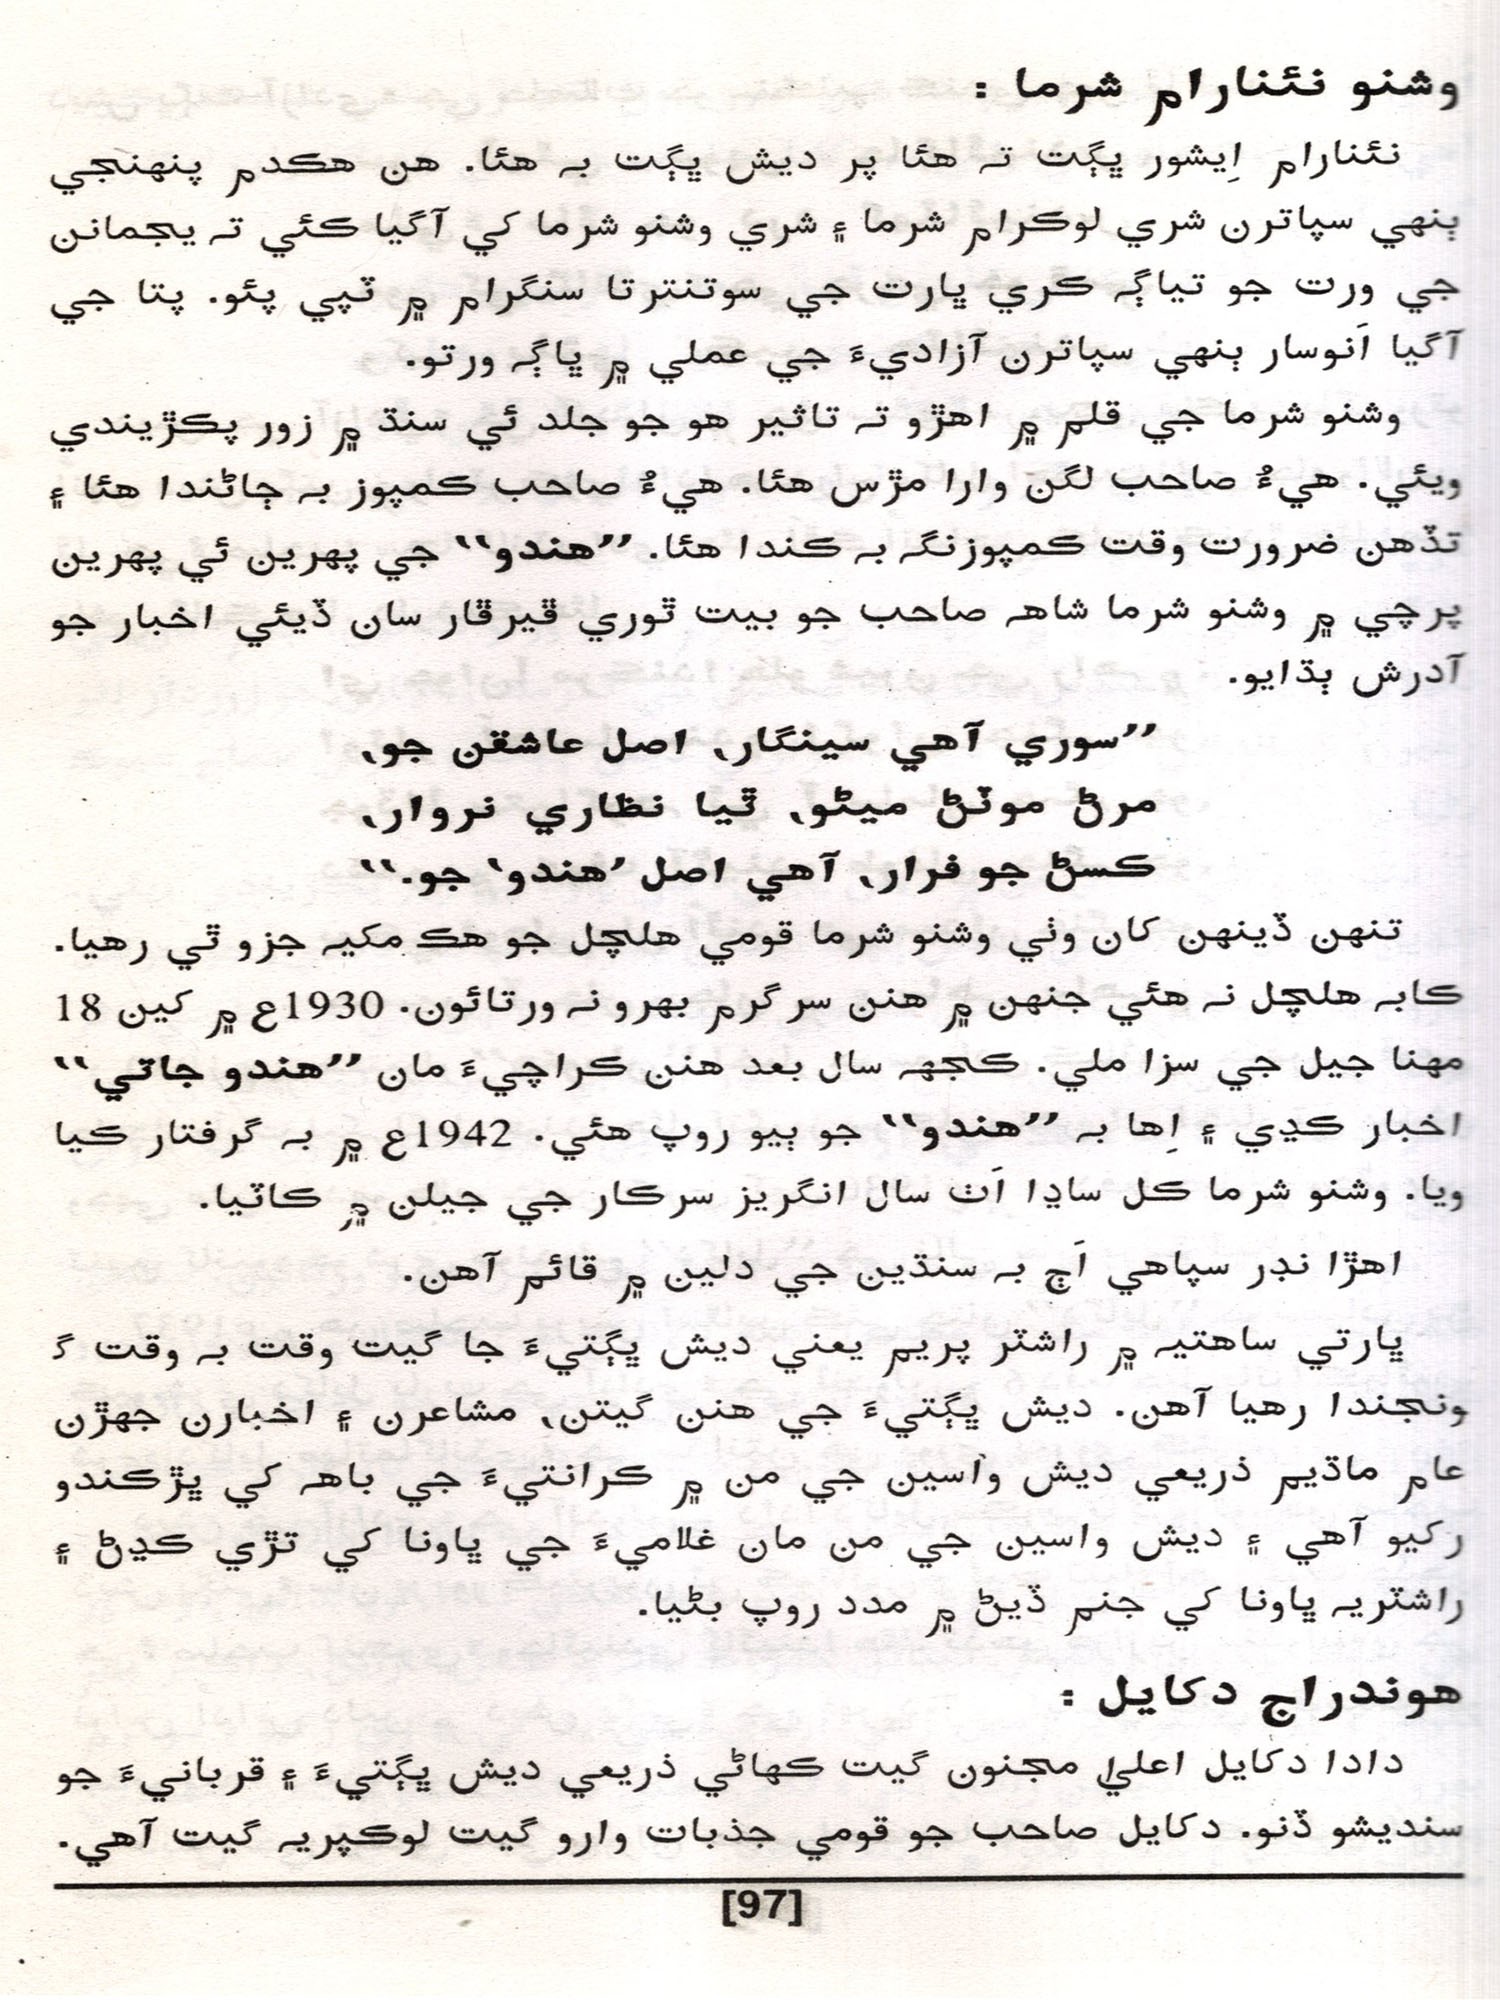 وشنو نئنارام شرما :
نئنارام اِيشور ڀڳت تہ هئا پر ديش ڀڳت بہ هئا. هن هڪدم پنهنجي
ٻنهي سپاترن شري لوڪرام شرما ۽ شري وشنو شرما کي آگيا ڪئي تہ يجمانن
جي ورت جو تياڳہ ڪري ڀارت جي سوتنترتا سنگرام ۾ ٽپي پئو. پتا جي
آگيا اَنوسار ٻنهي سپاترن آزاديءَ جي عملي ۾ ڀاڳہ ورتو.
وشنو شرما جي قلم ۾ اهڙو تہ تاثير هو جو جلد ئي سنڌ ۾ زور پڪڙيندي
ويئي. هيءُ صاحب لگن وارا مڙس هئا. هيءُ صاحب ڪمپوز بہ ڄاڻندا هئا ۽
تڏهن ضرورت وقت ڪمپوزنگہ بہ ڪندا هئا. ”هندو“ جي پهرين ئي پهرين
پرچي ۾ وشنو شرما شاهہ صاحب جو بيت ٿوري ڦيرڦار سان ڏيئي اخبار جو
آدرش ٻڌايو.
”سوري آهي سينگار، اصل عاشقن جو،
مرڻ موٽڻ ميڻو، ٿيا نظاري نروار،
ڪسڻ جو فرار، آهي اصل ’هندو‘ جو.“
تنهن ڏينهن کان وٺي وشنو شرما قومي هلچل جو هڪ مکيہ جزو ٿي رهيا.
ڪابہ هلچل نہ هئي جنهن ۾ هنن سر گرم بهرو نہ ورتائون. 1930ع ۾ کين 18
مهنا جيل جي سزا ملي. ڪجهہ سال بعد هنن ڪراچيءَ مان ”هندو جاتي“
اخبار ڪڍي ۽ اِها بہ ”هندو“ جو ٻيو روپ هئي. 1942ع ۾ بہ گرفتار ڪيا
ويا. وشنو شرما ڪل ساڍا اَٺ سال انگريز سرڪار جي جيلن ۾ ڪاٽيا.
اهڙا نڊر سپاهي اَڄ بہ سنڌين جي دلين ۾ قائم آهن.
ڀارتي ساهتيہ ۾ راشٽر پريم يعني ديش ڀڳتيءَ جا گيت وقت بہ وقت گ
ونجندا رهيا آهن. ديش ڀڳتيءَ جي هنن گيتن، مشاعرن ۽ اخبارن جهڙن
عام ماڌيم ذريعي ديش واسين جي من ۾ ڪرانتيءَ جي باهہ کي ڀڙڪندو
رکيو آهي ۽ ديش واسين جي من مان غلاميءَ جي ڀاونا کي تڙي ڪڍڻ ۽
راشٽريہ ڀاونا کي جنم ڏيڻ ۾ مدد روپ بڻيا.
هوندراج دکايل :
دادا دکايل اعليٰ مجنون گيت ڪهاڻي ذريعي ديش ڀڳتيءَ ۽ قربانيءَ جو
سنديشو ڏنو. دکايل صاحب جو قومي جذبات وارو گيت لوڪپريہ گيت آهي.
[97]